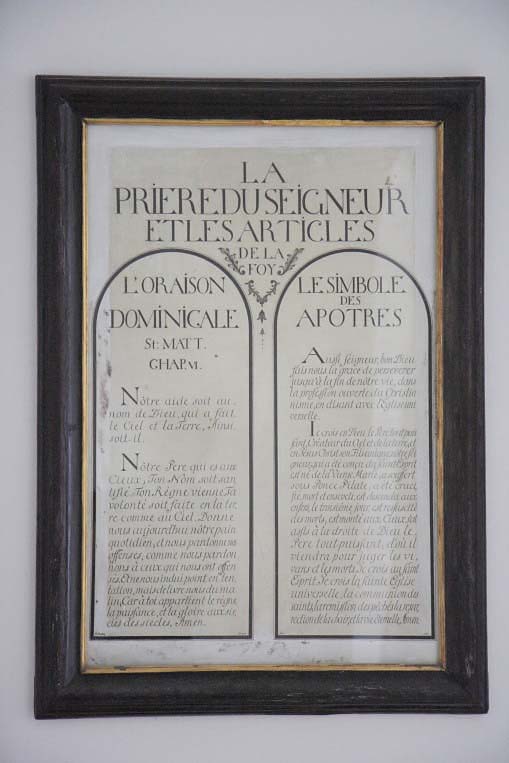 LA
PRIERE DU SEIGNEUR
ET LES ARTICLES
DE LA
FOY
L'ORAISON
DOMINICALE
St: MATT.
CHAP. VI.
Nôtre aide soit au
nom de Dieu, qui a fait
le Ciel et la Terre, Ainsi
soit-il.
Nôtre Pere qui es aux
Cieux, Ton Nom soit san
tifié Ton Régne vienne Ta
volonté soit faite en la ter
re comme au Ciel, Donne
nous aujourd'hui nôtre pain
quotidien, et nous pardonne nos
offenses, comme nous pardon
nons à ceux qui nous ont offen
sés, Et ne nous indui point en ten
tation, mais delivre nous du ma
lin, Car à toi appartient le régne
la puissance, et la gloire aux sie
cles des siecles, Amen.
LE SIMBOLE
DES
APOTRES
Aussi, seigneur, bon Dieu
fais nous la grace de perseverer
jusqu'à la fin de nôtre vie, dans
la profession ouverte du Christia
nisme, en disant avec l'Eglise uni
verselle.
Je crois en Dieu le Pere tout puis
sant, Créateur du Ciel et de la terre, et
en Jesus Christ son Fils unique nôtre sei
gneur, qui a été conçu du Saint Esprit
est né de la Vierge Marie, a souffert
sous Ponce Pilate, a été cruci
fié, mort et enseveli, est descendu aux
enfers, le troisiéme jour est ressuscité
des morts, est monté aux Cieux, est
assis à la droite de Dieu le
Pere tout-puissant, d'où il
viendra pour juger les vi
vans et les morts. Je crois au Saint
Esprit. Je crois la sainte Eglise
universelle, la communion des
saints, la remission des péchés, la resur
rection de la chair, et la vie éternelle, Amen.